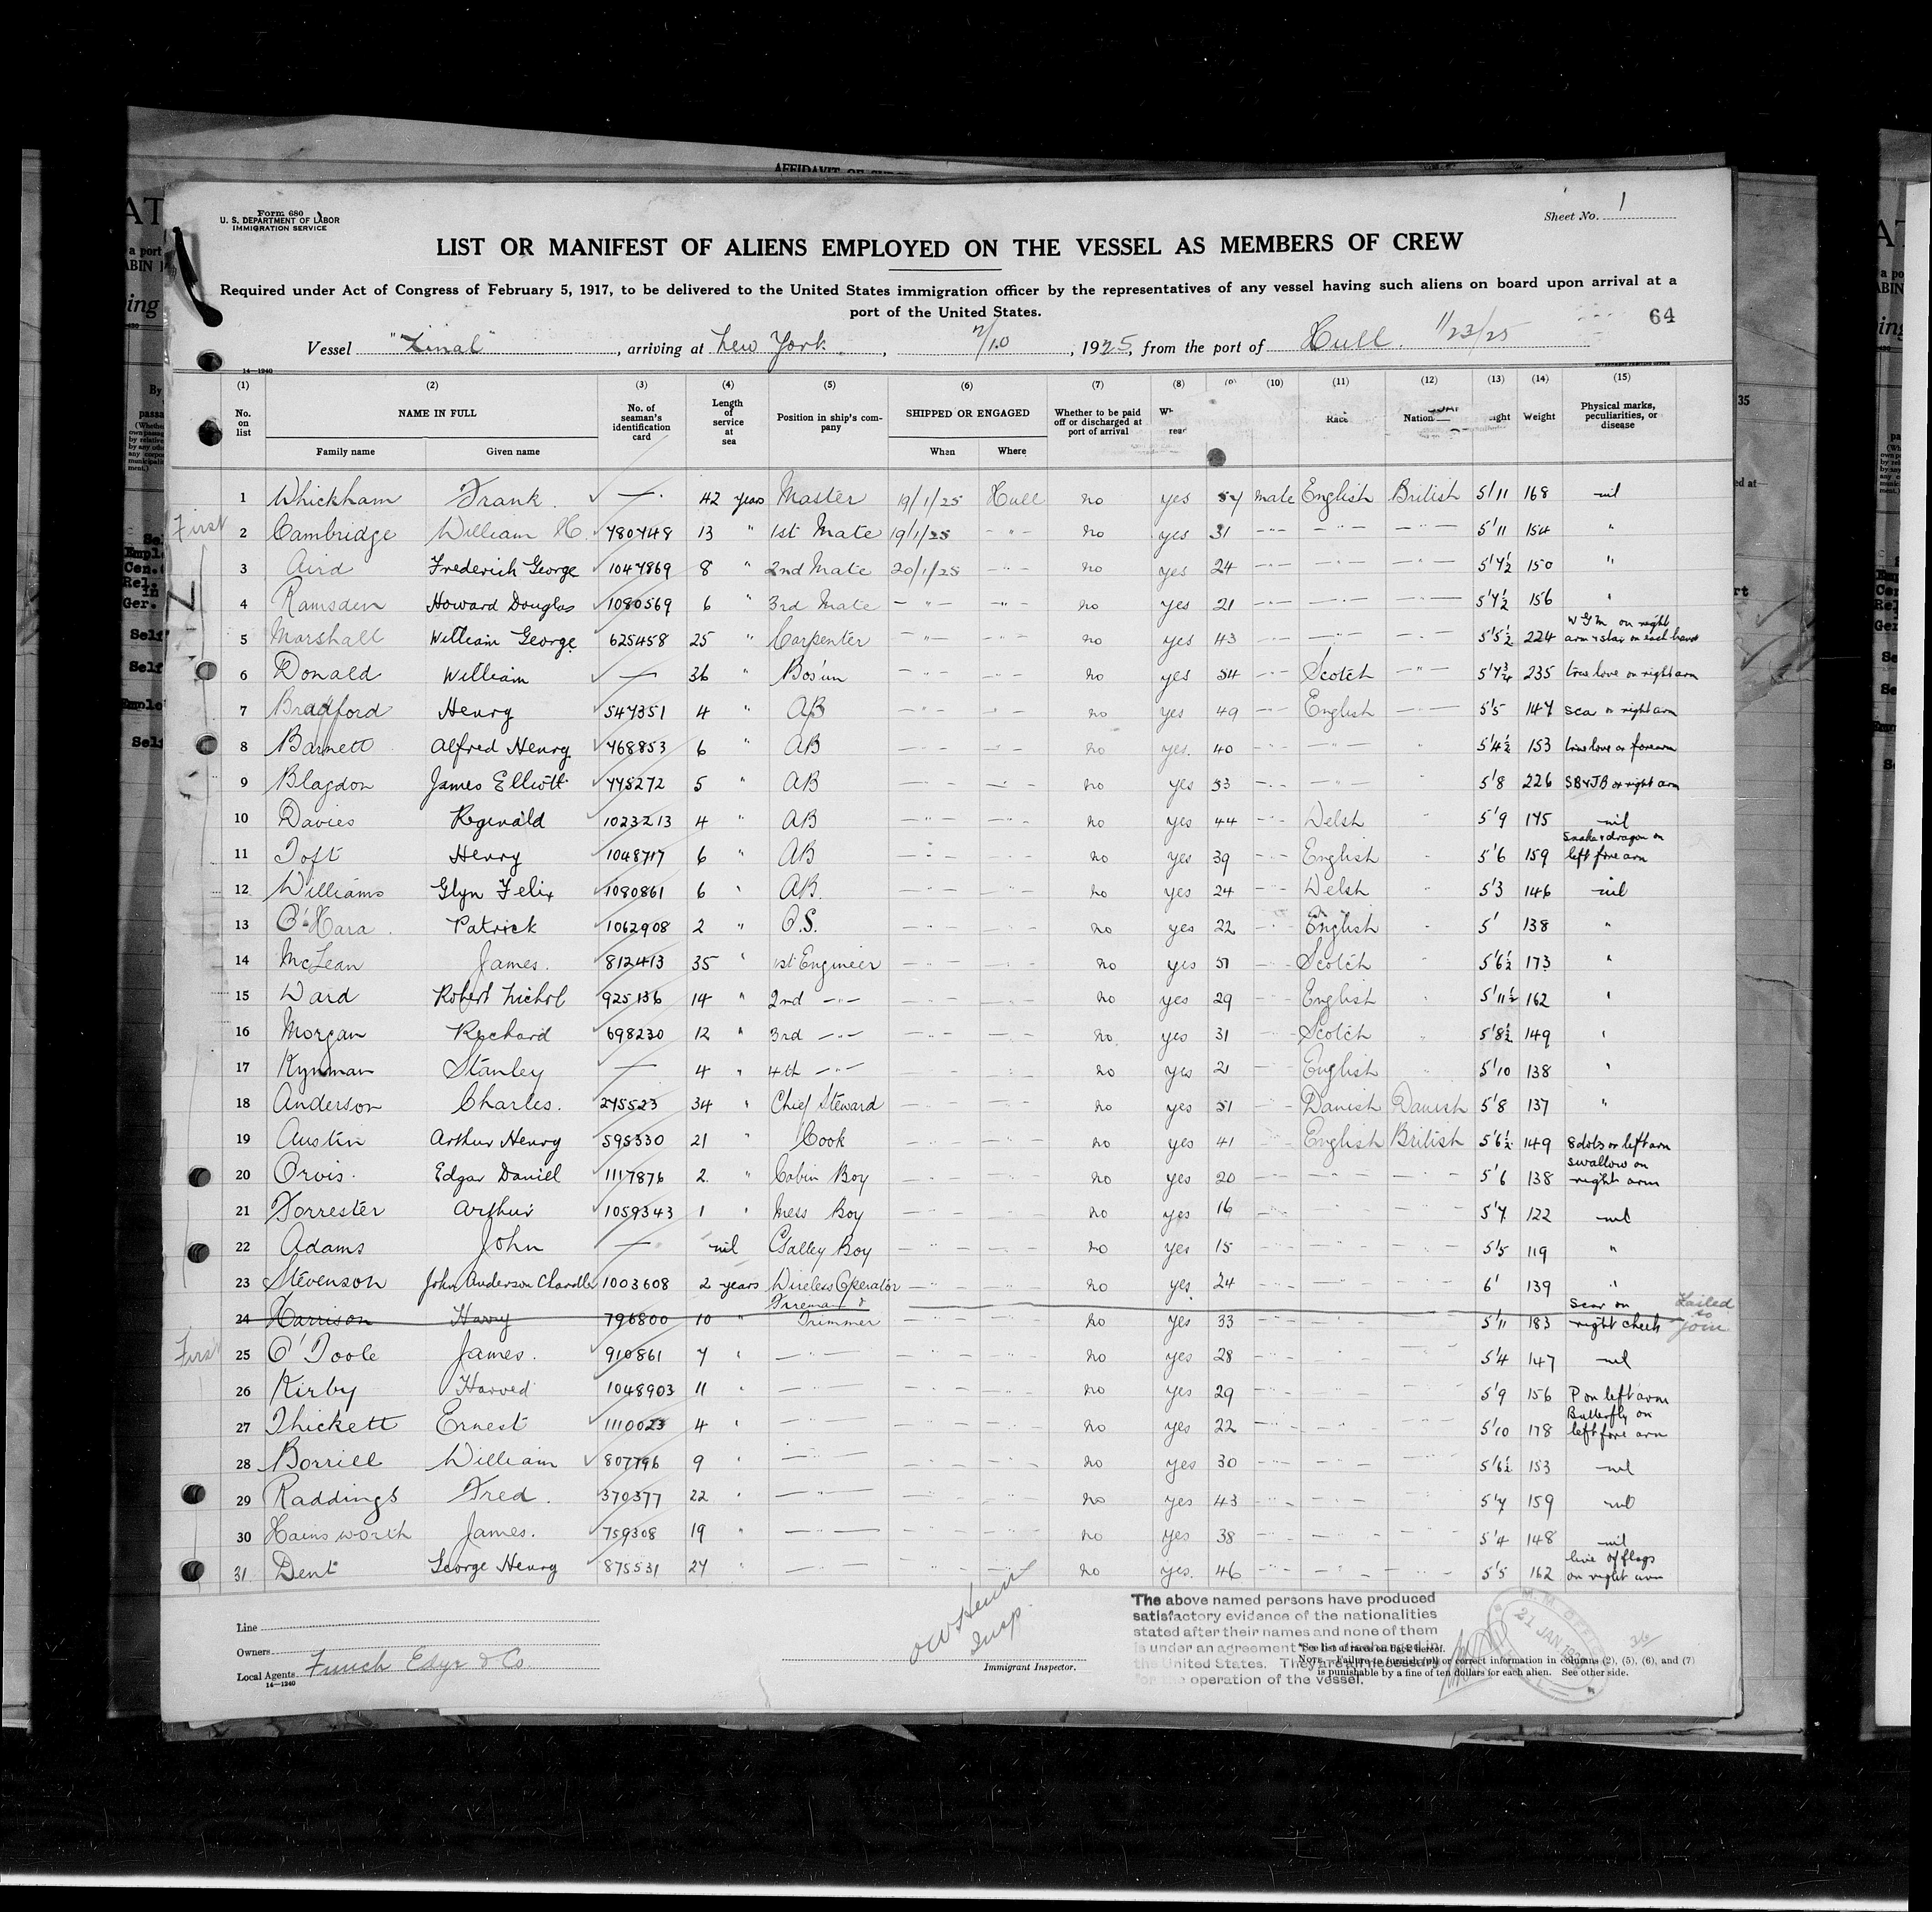 AFFIDAVIT OF
Form 680
U. S. DEPARTMENT OF LABOR
IMMIGRATION SERVICE
Sheet No. 1
LIST OR MANIFEST OF ALIENS EMPLOYED ON THE VESSEL AS MEMBERS OF CREW
Required under Act of Congress of February 5, 1917, to be delivered to the United States immigration officer by the representatives of any vessel having such aliens on board upon arrival at a
port of the United States.
64
Vessel "Zinal", arriving at New York, 2/10, 1925, from the port of Hull. 1/23/25
14—1240
(1) (2) (3) (4) (5) (6) (7) (8) (10) (11) (12) (13) (14) (15)
No. on list NAME IN FULL No. of seaman's identification card Length of service at sea Position in ship's company SHIPPED OR ENGAGED Whether to be paid off or discharged at port of arrival Race Weight Physical marks, peculiarities, or disease
Family name Given name When Where
1 Whickham Frank. — 42 years Master 19/1/25 Hull no yes 54 male English British 5'11 168 nil
First
2 Cambridge William H. 780748 13 " 1st Mate 19/1/25 — " — no yes 31 — " — — " — — " — 5'11 154 "
3 Aird Frederick George 1047869 8 " 2nd Mate 20/1/25 — " — no yes 24 — " — — " — — " — 5'7½ 150 "
4 Ramsden Howard Douglas 1080569 6 " 3rd Mate — " — — " — no yes 21 — " — — " — — " — 5'7½ 156 "
5 Marshall William George 625458 25 " Carpenter — " — — " — no yes 43 — " — — " — — " — 5'5½ 224 W G M on right arm & star on each hand
6 Donald William — 36 " Bos'un — " — — " — no yes 54 — " — Scotch — " — 5'7¾ 235 true love on right arm
7 Bradford Henry 547351 4 " AB — " — — " — no yes 49 — " — English — " — 5'5 147 scar on right arm
8 Barnett Alfred Henry 468853 6 " AB — " — — " — no yes. 40 — " — — " — " 5'4½ 153 true love on forearm
9 Blagdon James Elliott 775272 5 " AB — " — — " — no yes 53 — " — — " — " 5'8 226 SB & JB on right arm
10 Davies Reginald 1023213 4 " AB — " — — " — no yes 44 — " — Welsh " 5'9 175 nil
11 Toft Henry 1048717 6 " AB — " — — " — no yes 39 — " — English " 5'6 159 Snake & dragon on left fore arm
12 Williams Glyn Felix 1080861 6 " AB. — " — — " — no yes 24 — " — Welsh " 5'3 146 nil
13 O'Hara. Patrick 1062908 2 " O.S. — " — — " — no yes 22 — " — English " 5' 138 "
14 McLean James. 812413 35 " 1st Engineer — " — — " — no yes 51 — " — Scotch " 5'6½ 173 "
15 Ward Robert Nichol 925136 14 " 2nd — " — — " — — " — no yes 29 — " — English " 5'11½ 162 "
16 Morgan Richard 698230 12 " 3rd — " — — " — — " — no yes 31 — " — Scotch " 5'8½ 149 "
17 Kynman Stanley — 4 " 4th — " — — " — — " — no yes 21 — " — English " 5'10 138 "
18 Anderson Charles. 275523 34 " Chief Steward — " — — " — no yes 51 — " — Danish Danish 5'8 137 "
19 Austin Arthur Henry 595330 21 " Cook — " — — " — no yes 41 — " — English British 5'6½ 149 8 dots on left arm
20 Orvis. Edgar Daniel 1117876 2. " Cabin Boy — " — — " — no yes 20 — " — — " — — " — 5'6 138 swallow on right arm
21 Forrester Arthur 1059343 1 " Mess Boy — " — — " — no yes 16 — " — — " — — " — 5'7 122 nil
22 Adams John — nil Galley Boy — " — — " — no yes 15 — " — — " — — " — 5'5 119 "
23 Stevenson John Anderson Chandler 1003608 2 years Wireless Operator — " — — " — no yes. 24 — " — — " — — " — 6' 139 "
24 Harrison Harry 796800 10 " Fireman & Trimmer — " — — " — no yes 33 — " — — " — — " — 5'11 183 scar on right cheek Failed to join
First
25 O'Toole James. 910861 7 " — " — — " — — " — no yes 28 — " — — " — — " — 5'4 147 nil
26 Kirby Harved 1048903 11 " — " — — " — — " — no yes 29 — " — — " — — " — 5'9 156 P on left arm
27 Thickett Ernest 1110023 4 " — " — — " — — " — no yes 22 — " — — " — — " — 5'10 178 Butterfly on left fore arm
28 Borrill William 807796 9 " — " — — " — — " — no yes 30 — " — — " — — " — 5'6½ 153 nil
29 Raddings Fred. 370377 22 " — " — — " — — " — no yes 43 — " — — " — — " — 5'7 159 nil
30 Hainsworth James. 759308 19 " — " — — " — — " — no yes 38 — " — — " — — " — 5'4 148 nil
31 Dent George Henry 875531 27 " — " — — " — — " — no yes. 46 — " — — " — — " — 5'5 162 line of flags on right arm
Line
Owners
Local Agents Funch Edye & Co.
14—1240
Insp.
Immigrant Inspector.
The above named persons have produced
satisfactory evidence of the nationalities
stated after their names and none of them
is under an agreement to be discharged in
the United States. They are all necessary
for the operation of the vessel.
*See list of races on back hereof.
NOTE.—Failure to furnish full or correct information in columns (2), (5), (6), and (7)
is punishable by a fine of ten dollars for each alien. See other side.
M. M. OFFICE
21 JAN 1925